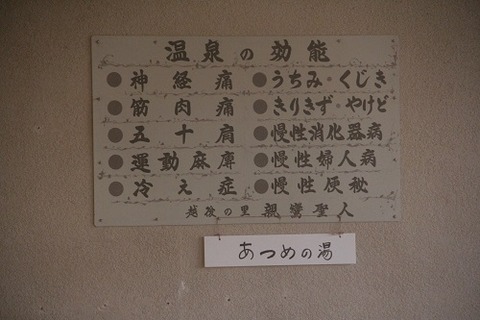 温泉の効能
●神経痛 ●うちみ・くじき
●筋肉痛 ●きりきず・やけど
●五十肩 ●慢性消化器病
●運動麻痺 ●慢性婦人病
●冷え症 ●慢性便秘
越後の里 親鸞聖人
あつめの湯